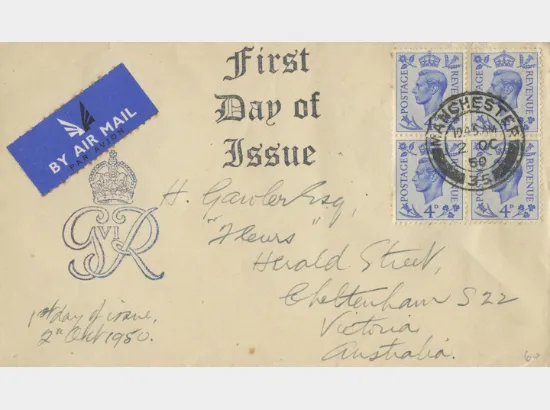 First
Day of
Issue
BY AIR MAIL
PAR AVION
GVIR
POSTAGE REVENUE
POSTAGE REVENUE
POSTAGE REVENUE 4D
POSTAGE REVENUE 4D
MANCHESTER
2 OC
50
35
H. Gawler Esq,
"Fleurs"
Herald Street,
Cheltenham S 22
Victoria
Australia.
1st day of issue,
2nd Oct 1950.
60